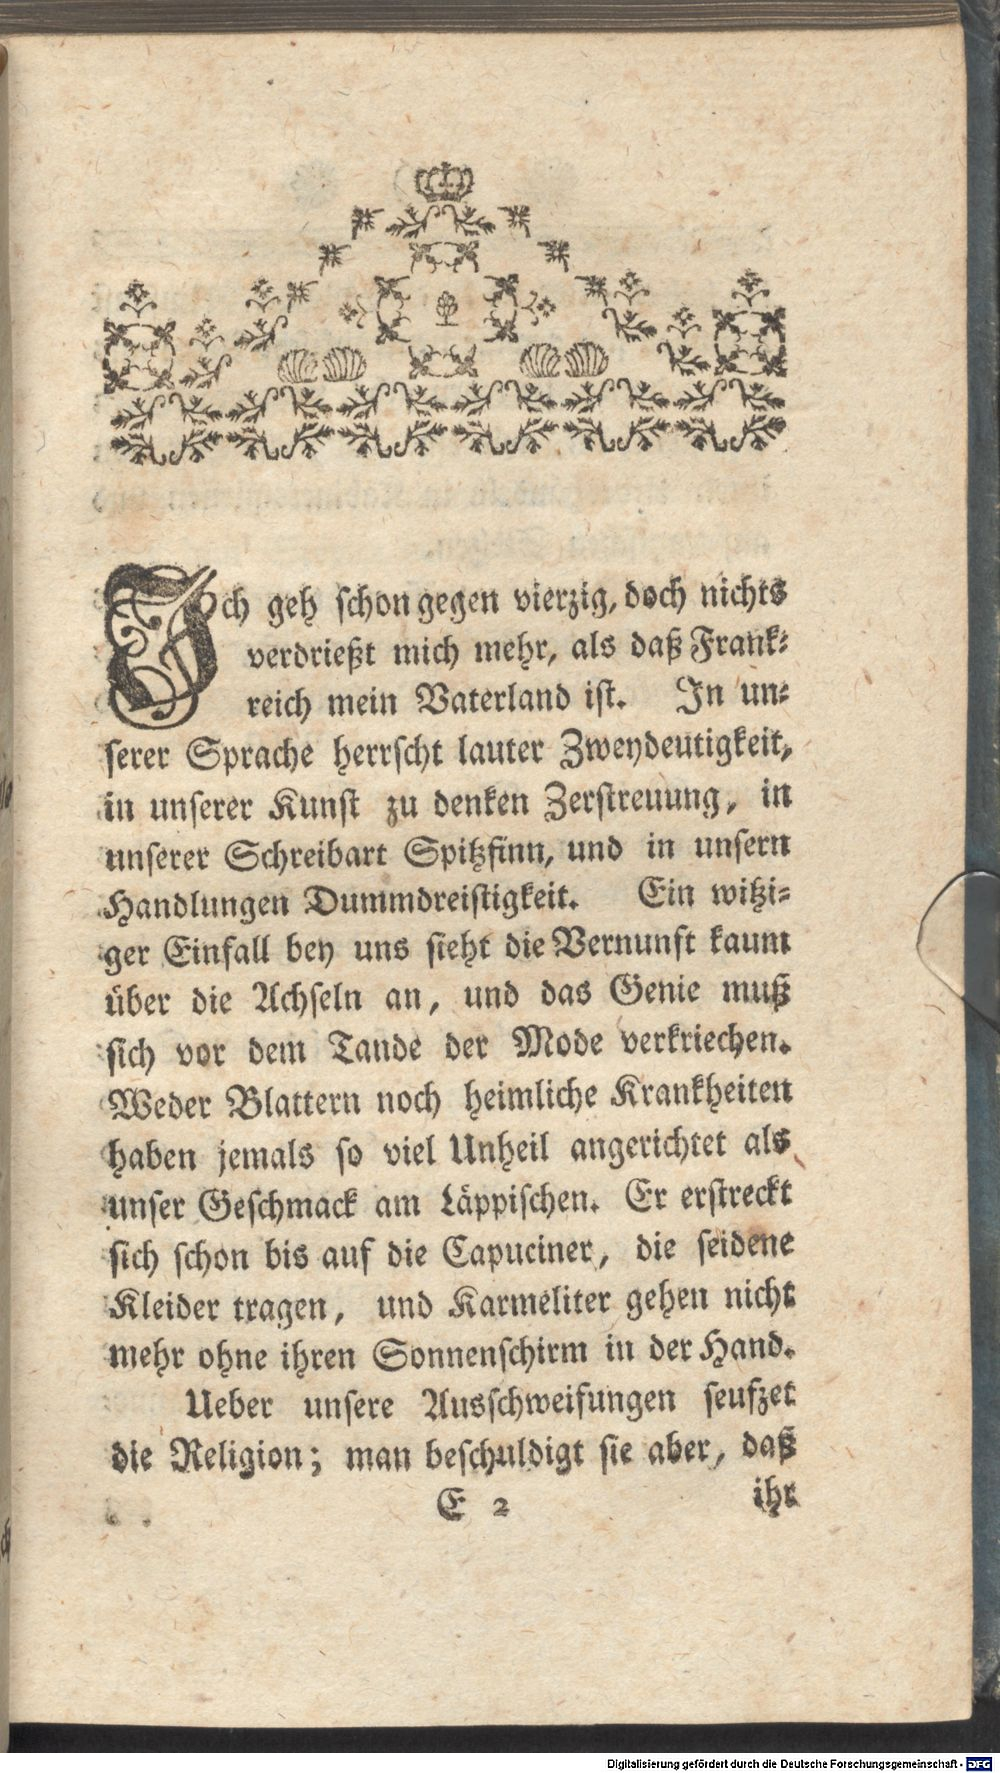 Ich geh schon gegen vierzig, doch nichts
verdrießt mich mehr, als daß Frank-
reich mein Vaterland ist. In un-
serer Sprache herrscht lauter Zweydeutigkeit,
in unserer Kunst zu denken Zerstreuung, in
unserer Schreibart Spitzfinn, und in unsern
Handlungen Dummdreistigkeit. Ein witzi-
ger Einfall bey uns sieht die Vernunft kaum
über die Achseln an, und das Genie muß
sich vor dem Tande der Mode verkriechen.
Weder Blattern noch heimliche Krankheiten
haben jemals so viel Unheil angerichtet als
unser Geschmack am Läppischen. Er erstreckt
sich schon bis auf die Capuciner, die seidene
Kleider tragen, und Karmeliter gehen nicht
mehr ohne ihren Sonnenschirm in der Hand.
Ueber unsere Ausschweifungen seufzet
die Religion; man beschuldigt sie aber, daß
E 2 ihr
Digitalisierung gefördert durch die Deutsche Forschungsgemeinschaft - DFG